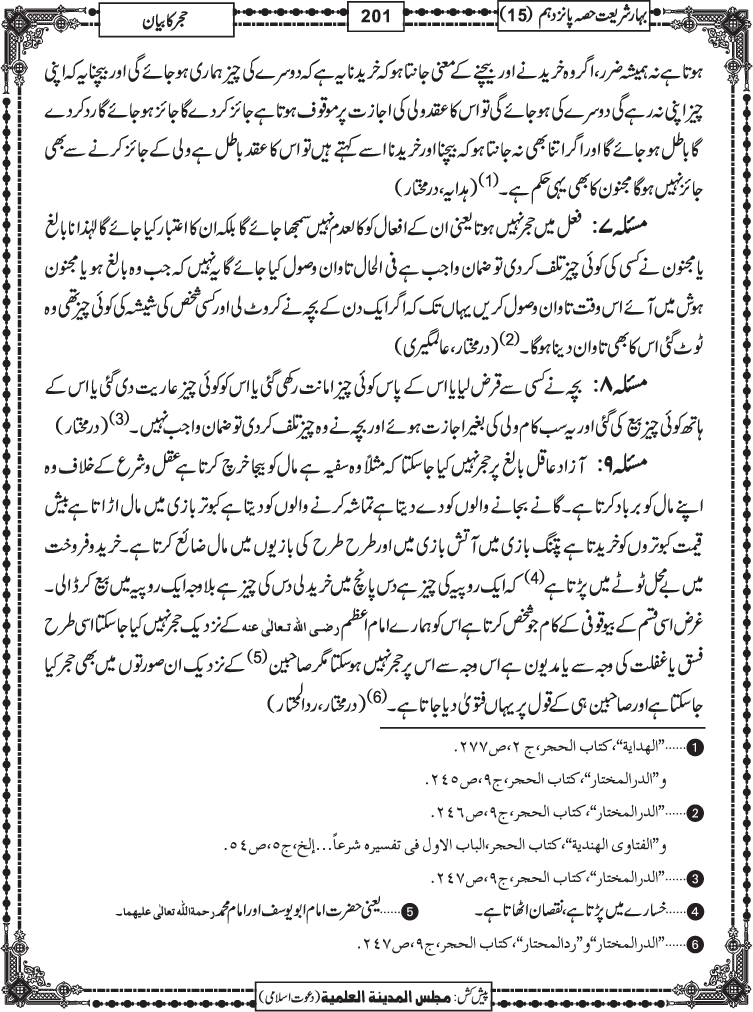 بہار شریعت حصہ پانزدہم (15)
201
حجر کا بیان
ہوتا ہے نہ ہمیشہ ضرر، اگر وہ خریدنے اور بیچنے کے معنی جانتا ہو کہ خریدنا یہ ہے کہ دوسرے کی چیز ہماری ہو جائے گی اور بیچنا یہ کہ اپنی
چیز اپنی نہ رہے گی دوسرے کی ہو جائے گی تو اس کا عقد ولی کی اجازت پر موقوف ہوتا ہے جائز کر دے گا جائز ہو جائے گا رد کر دے
گا باطل ہو جائے گا اور اگر اتنا بھی نہ جانتا ہو کہ بیچنا اور خریدنا اسے کہتے ہیں تو اس کا عقد باطل ہے ولی کے جائز کرنے سے بھی
جائز نہیں ہوگا مجنون کا بھی یہی حکم ہے۔(1) (ہدایہ، درمختار)
مسئلہ ۷: فعل میں حجر نہیں ہوتا یعنی ان کے افعال کو کالعدم نہیں سمجھا جائے گا بلکہ ان کا اعتبار کیا جائے گا لہٰذا نابالغ
یا مجنون نے کسی کی کوئی چیز تلف کر دی تو ضمان واجب ہے فی الحال تاوان وصول کیا جائے گا یہ نہیں کہ جب وہ بالغ ہو یا مجنون
ہوش میں آئے اس وقت تاوان وصول کریں یہاں تک کہ اگر ایک دن کے بچہ نے کروٹ لی اور کسی شخص کی شیشہ کی کوئی چیز تھی وہ
ٹوٹ گئی اس کا بھی تاوان دینا ہوگا۔(2) (درمختار، عالمگیری)
مسئلہ ۸: بچہ نے کسی سے قرض لیا یا اس کے پاس کوئی چیز امانت رکھی گئی یا اس کو کوئی چیز عاریت دی گئی یا اس کے
ہاتھ کوئی چیز بیع کی گئی اور یہ سب کام ولی کی بغیر اجازت ہوئے اور بچہ نے وہ چیز تلف کر دی تو ضمان واجب نہیں۔(3) (درمختار)
مسئلہ ۹: آزاد عاقل بالغ پر حجر نہیں کیا جاسکتا کہ مثلاً وہ سفیہ ہے مال کو بیجا خرچ کرتا ہے عقل و شرع کے خلاف وہ
اپنے مال کو برباد کرتا ہے۔ گانے بجانے والوں کو دے دیتا ہے تماشہ کرنے والوں کو دیتا ہے کبوتر بازی میں مال اڑاتا ہے بیش
قیمت کبوتروں کو خریدتا ہے پتنگ بازی میں آتش بازی میں اور طرح طرح کی بازیوں میں مال ضائع کرتا ہے۔ خرید و فروخت
میں بے محل ٹوٹے میں پڑتا ہے(4) کہ ایک روپیہ کی چیز ہے دس پانچ میں خرید لی دس کی چیز ہے بلا وجہ ایک روپیہ میں بیع کر ڈالی۔
غرض اسی قسم کے بیوقوفی کے کام جو شخص کرتا ہے اس کو ہمارے امام اعظم رضی اللہ تعالٰی عنہ کے نزدیک حجر نہیں کیا جاسکتا اسی طرح
فسق یا غفلت کی وجہ سے یا مدیون ہے اس وجہ سے اس پر حجر نہیں ہوسکتا مگر صاحبین (5) کے نزدیک ان صورتوں میں بھی حجر کیا
جاسکتا ہے اور صاحبین ہی کے قول پر یہاں فتویٰ دیا جاتا ہے۔(6) (درمختار، ردالمحتار)
1 ......"الهداية"، كتاب الحجر، ج ٢، ص٢٧٧.
و"الدرالمختار"، كتاب الحجر، ج٩، ص٢٤٥.
2 ......"الدرالمختار"، كتاب الحجر، ج٩، ص٢٤٦.
و"الفتاوى الهندية"، كتاب الحجر، الباب الاول فى تفسيره شرعاً...إلخ، ج٥، ص٥٤.
3 ......"الدرالمختار"، كتاب الحجر، ج٩، ص٢٤٧.
4 ......خسارے میں پڑتا ہے، نقصان اٹھاتا ہے۔ 5 ......یعنی حضرت امام ابو یوسف اور امام محمد رحمۃ اللہ تعالٰی علیھما۔
6 ......"الدرالمختار" و"ردالمحتار"، كتاب الحجر، ج٩، ص٢٤٧.
پیش کش: مجلس المدينة العلمية (دعوت اسلامی)